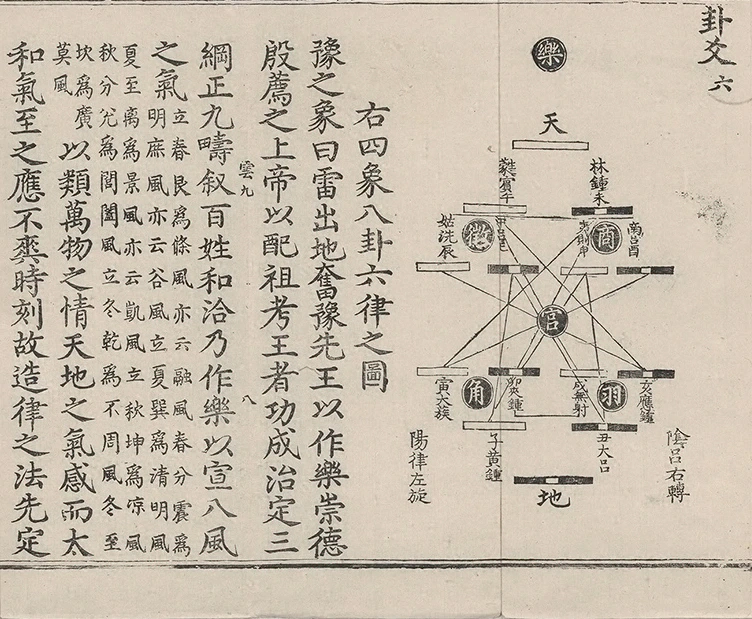 卦爻 六
樂
天
林鍾未
蕤賓午
南呂酉
夷則申
仲呂巳
姑洗辰
商
徵
宮
亥應鐘
戌無射
卯夾鍾
寅大族
羽
角
丑大呂
子黃鍾
陰呂右轉
陽律左旋
地
右四象八卦六律之圖
豫之象曰雷出地奮豫先王以作樂崇德
殷薦之上帝以配祖考王者功成治定三
雲九
八
綱正九疇叙百姓和洽乃作樂以宣八風
之氣
立春艮爲條風亦云融風春分震爲
明庶風亦云谷風立夏巽爲清明風
夏至離爲景風亦云凱風立秋坤爲凉風
秋分兊爲閶闔風立冬乾爲不周風冬至
坎爲廣
莫風
以類萬物之情天地之氣感而太
和氣至之應不爽時刻故造律之法先定